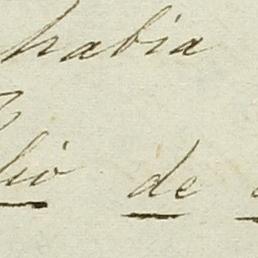 habia
lio de